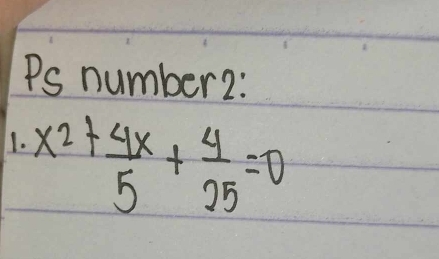 Ps number 2:
1. x2 + 4x/5 + 4/25 = 0